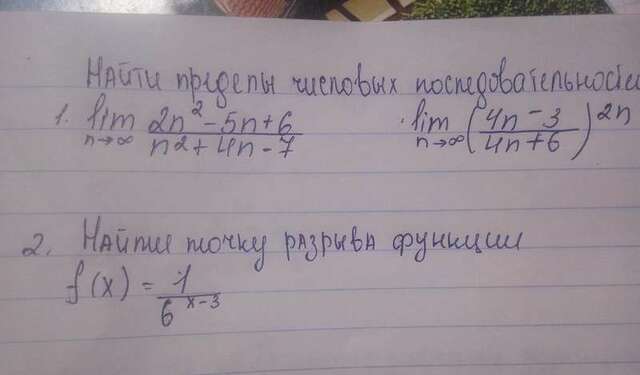 Найти пределы числовых последовательностей
1. lim n→∞ (2n² - 5n + 6)/(n2 + 4n - 7) lim n→∞ ((4n - 3)/(4n + 6))^2n
2. Найти точку разрыва функции
f(x) = 1/6^(x-3)